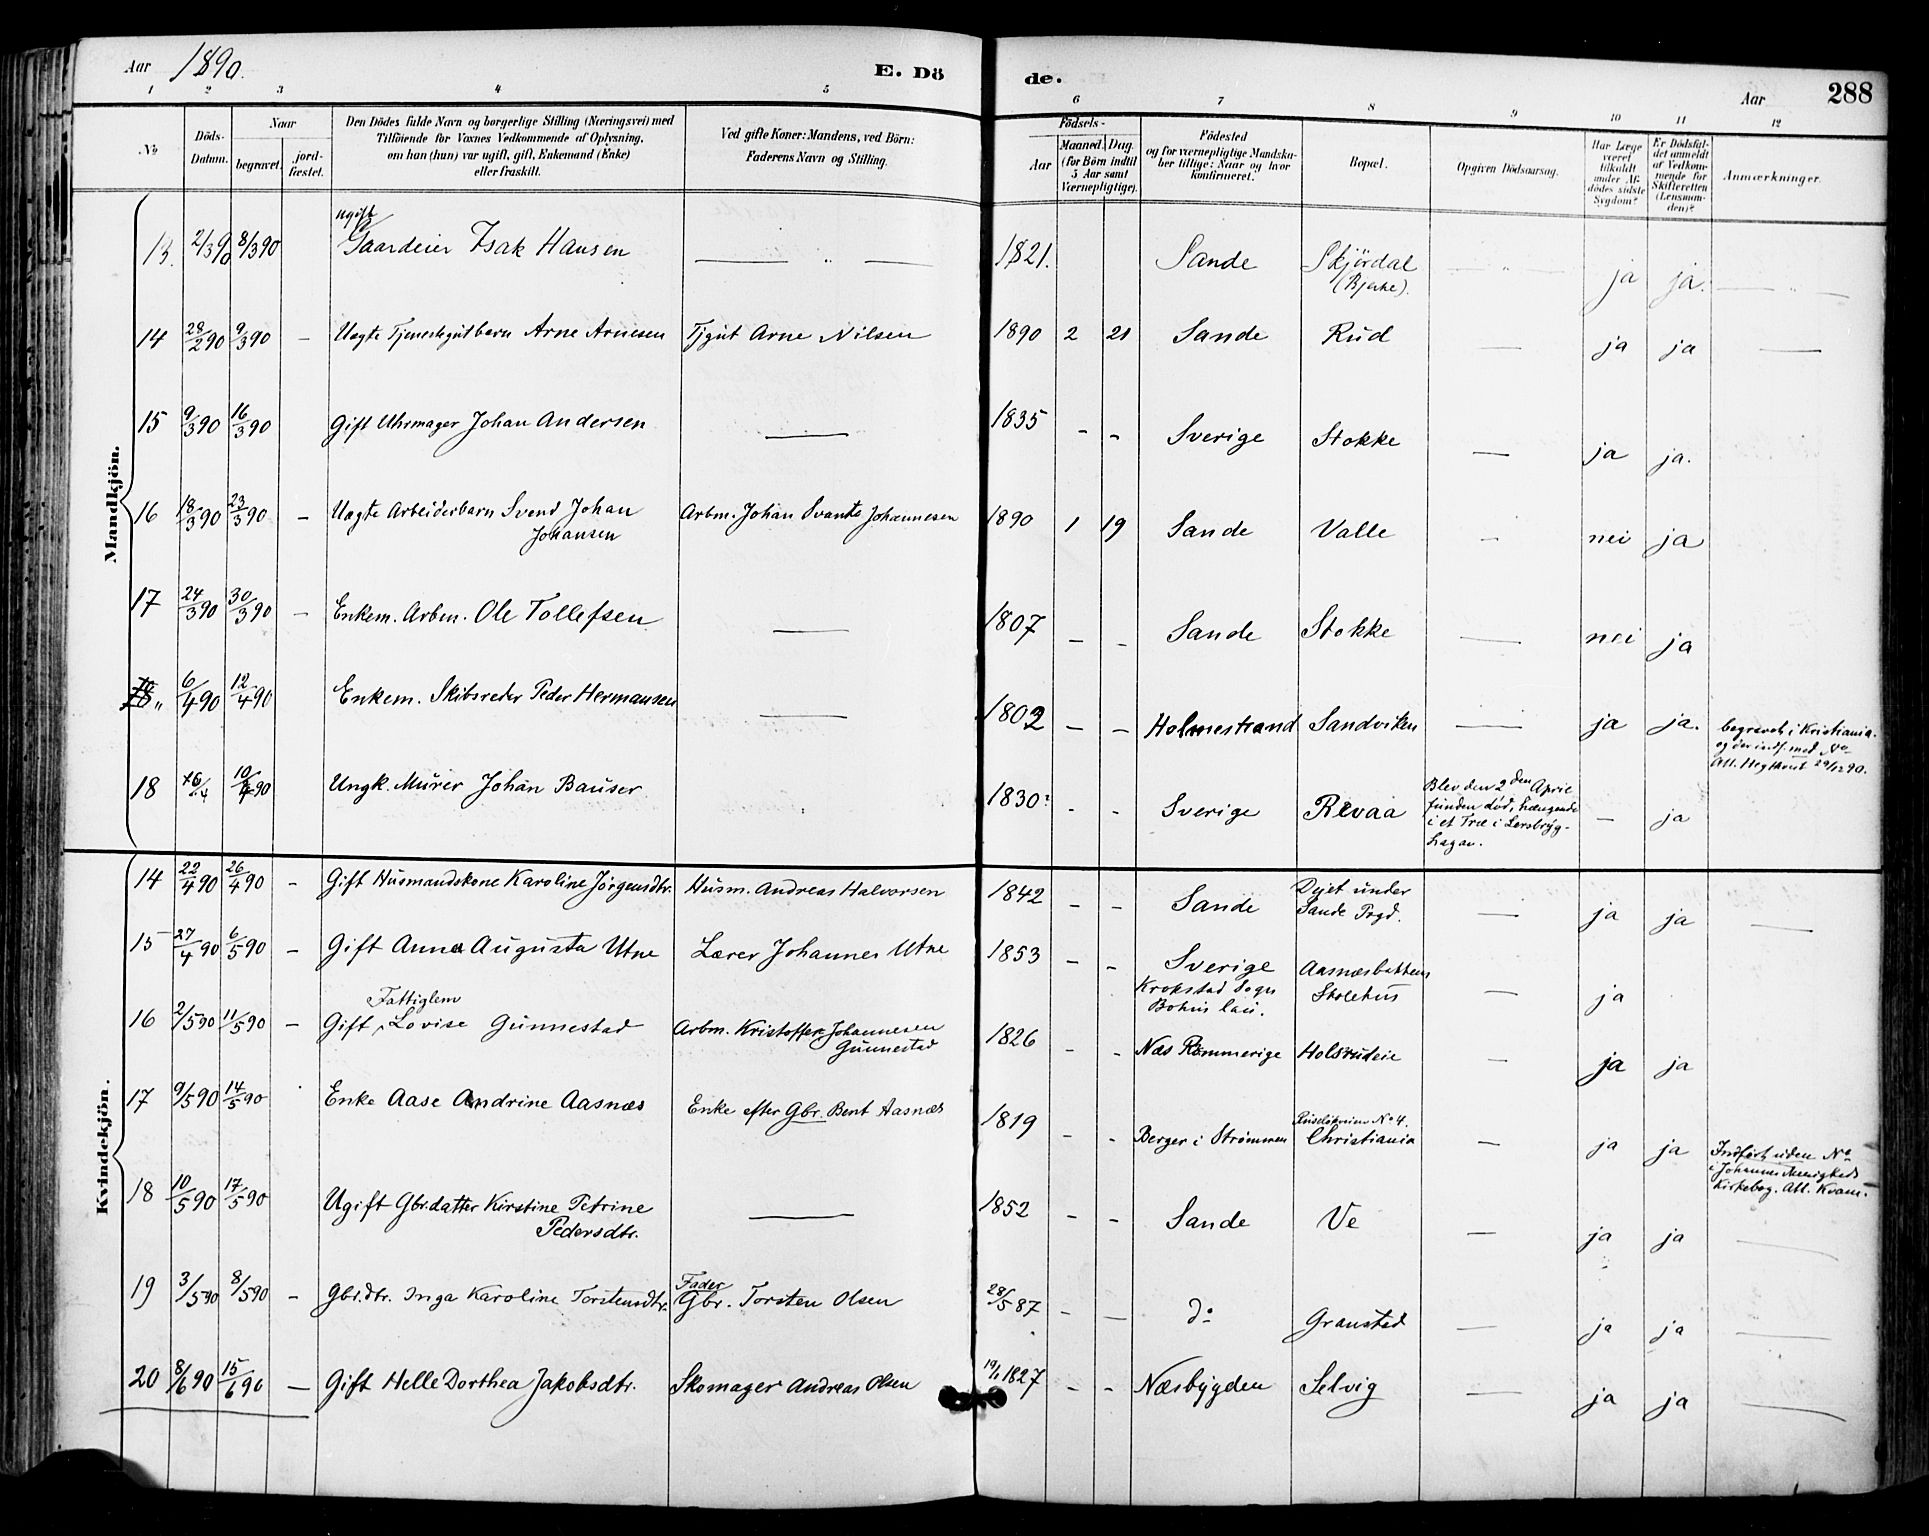 Aar 1890.
E. Döde.
Aar 288
1 2 3 4 5 6 7 8 9 10 11 12
No
Döds-Datum.
Naar
begravet.
jord-fæstet.
Den Dödes fulde Navn og borgerlige Stilling (Næringsvei) med
Tilföiende for Voxnes Vedkommende af Oplysning,
om han (hun) var ugift, gift, Enkemand (Enke)
eller fraskilt.
Ved gifte Koner: Mandens, ved Börn:
Faderens Navn og Stilling.
Födsels-
Aar
Maaned. Dag.
(for Börn indtil
5 Aar samt
Værnepligtige).
Födested
og for værnepligtige Mandska-
ber tillige: Naar og hvor
konfirmeret.
Bopæl.
Opgiven Dödsaarsag.
Har Læge
været
tilkaldt
under Af-
dödes sidste
Sygdom?
Er Dödsfal-
det anmeldt
af Vedkom-
mende for
Skifteretten
(Lensman-
den)?
Anmærkninger.
Mandkjön.
ugift
13. 2/3 90 8/3 90 Gaardeier Isak Hansen — " — 1821. Sande Skjørdal — " — ja ja. — " —
(Bjerke).
14 28/2 90 9/3 90 — Uægte Tjenestegutbarn Arne Arnesen Tjgut Arne Nilsen 1890 2 21 Sande Rud — ja ja —
15 9/3 90 16/3 90 Gift Uhrmager Johan Andersen — 1835 - - Sverige Stokke — ja ja.
16 18/3 90 23/3 90 — Uægte Arbeiderbarn Svend Johan Arbm. Johan Svante Johannesen 1890 1 19 Sande Valle - nei ja
Johansen
17 24/3 90 30/3 90 — Enkem. Arbm. Ole Tollefsen — 1807 - - Sande Stokke — nei ja
18 " 6/4 90 12/4 90 Enkem. Skibsreder Peder Hermansen — 1802 — — Holmestrand Sandviken — ja ja. begravet i Kristiania
og der indf. med No
Att. Hegtkvist 29/12 90.
18 10/4 90 Ungk. Murer Johan Bauser 1830? - - Sverige Revaa Blev den 2den April
funden död, hængende
i et Træ i Lersbryg-
hagan. — ja
Kvindekjön.
14 22/4 90 26/4 90 — Gift Husmandskone Karoline Jörgensdtr. Husm. Andreas Halvorsen 1842 - - Sande under
Sande Prgd. — ja ja —
15 27/4 90 6/5 90 — Gift Anna Augusta Utne Lærer Johannes Utne 1853 - - Sverige
Krokstad Sogn
Bohus Län. Aasnæsbakkens
Skolehus — ja
Fattiglem
16 2/5 90 11/5 90 — Gift Lovise Gunnestad Arbm. Kristoffer Johannesen
Gunnestad 1826 - - Næs Rommerige Holsrudeie — ja ja
17 9/5 90 14/5 90 Enke Aase Andrine Aasnæs Enke efter Gbr. Bent Aasnæs 1819 - - Berger i Strømmen No 4.
Christiania — ja ja Indført uden No
i Johannes Menigheds
Kirkebog. Att. Kvam.
18 10/5 90 17/5 90 Ugift Gbr.datter Kirstine Petrine
Pedersdtr. — 1852 - - Sande Ve — ja ja —
19 3/5 90 8/5 90 — Gbr.dtr. Inga Karoline Torstensdtr. Fader
Gbr. Torsten Olsen 28/5 87 - — do Granstad — ja ja —
20 8/6 90 15/6 90 — Gift Helle Dorthea Jakobsdtr. Skomager Andreas Olsen 19/1 1827 - - Næsbygden Selvig — ja ja —